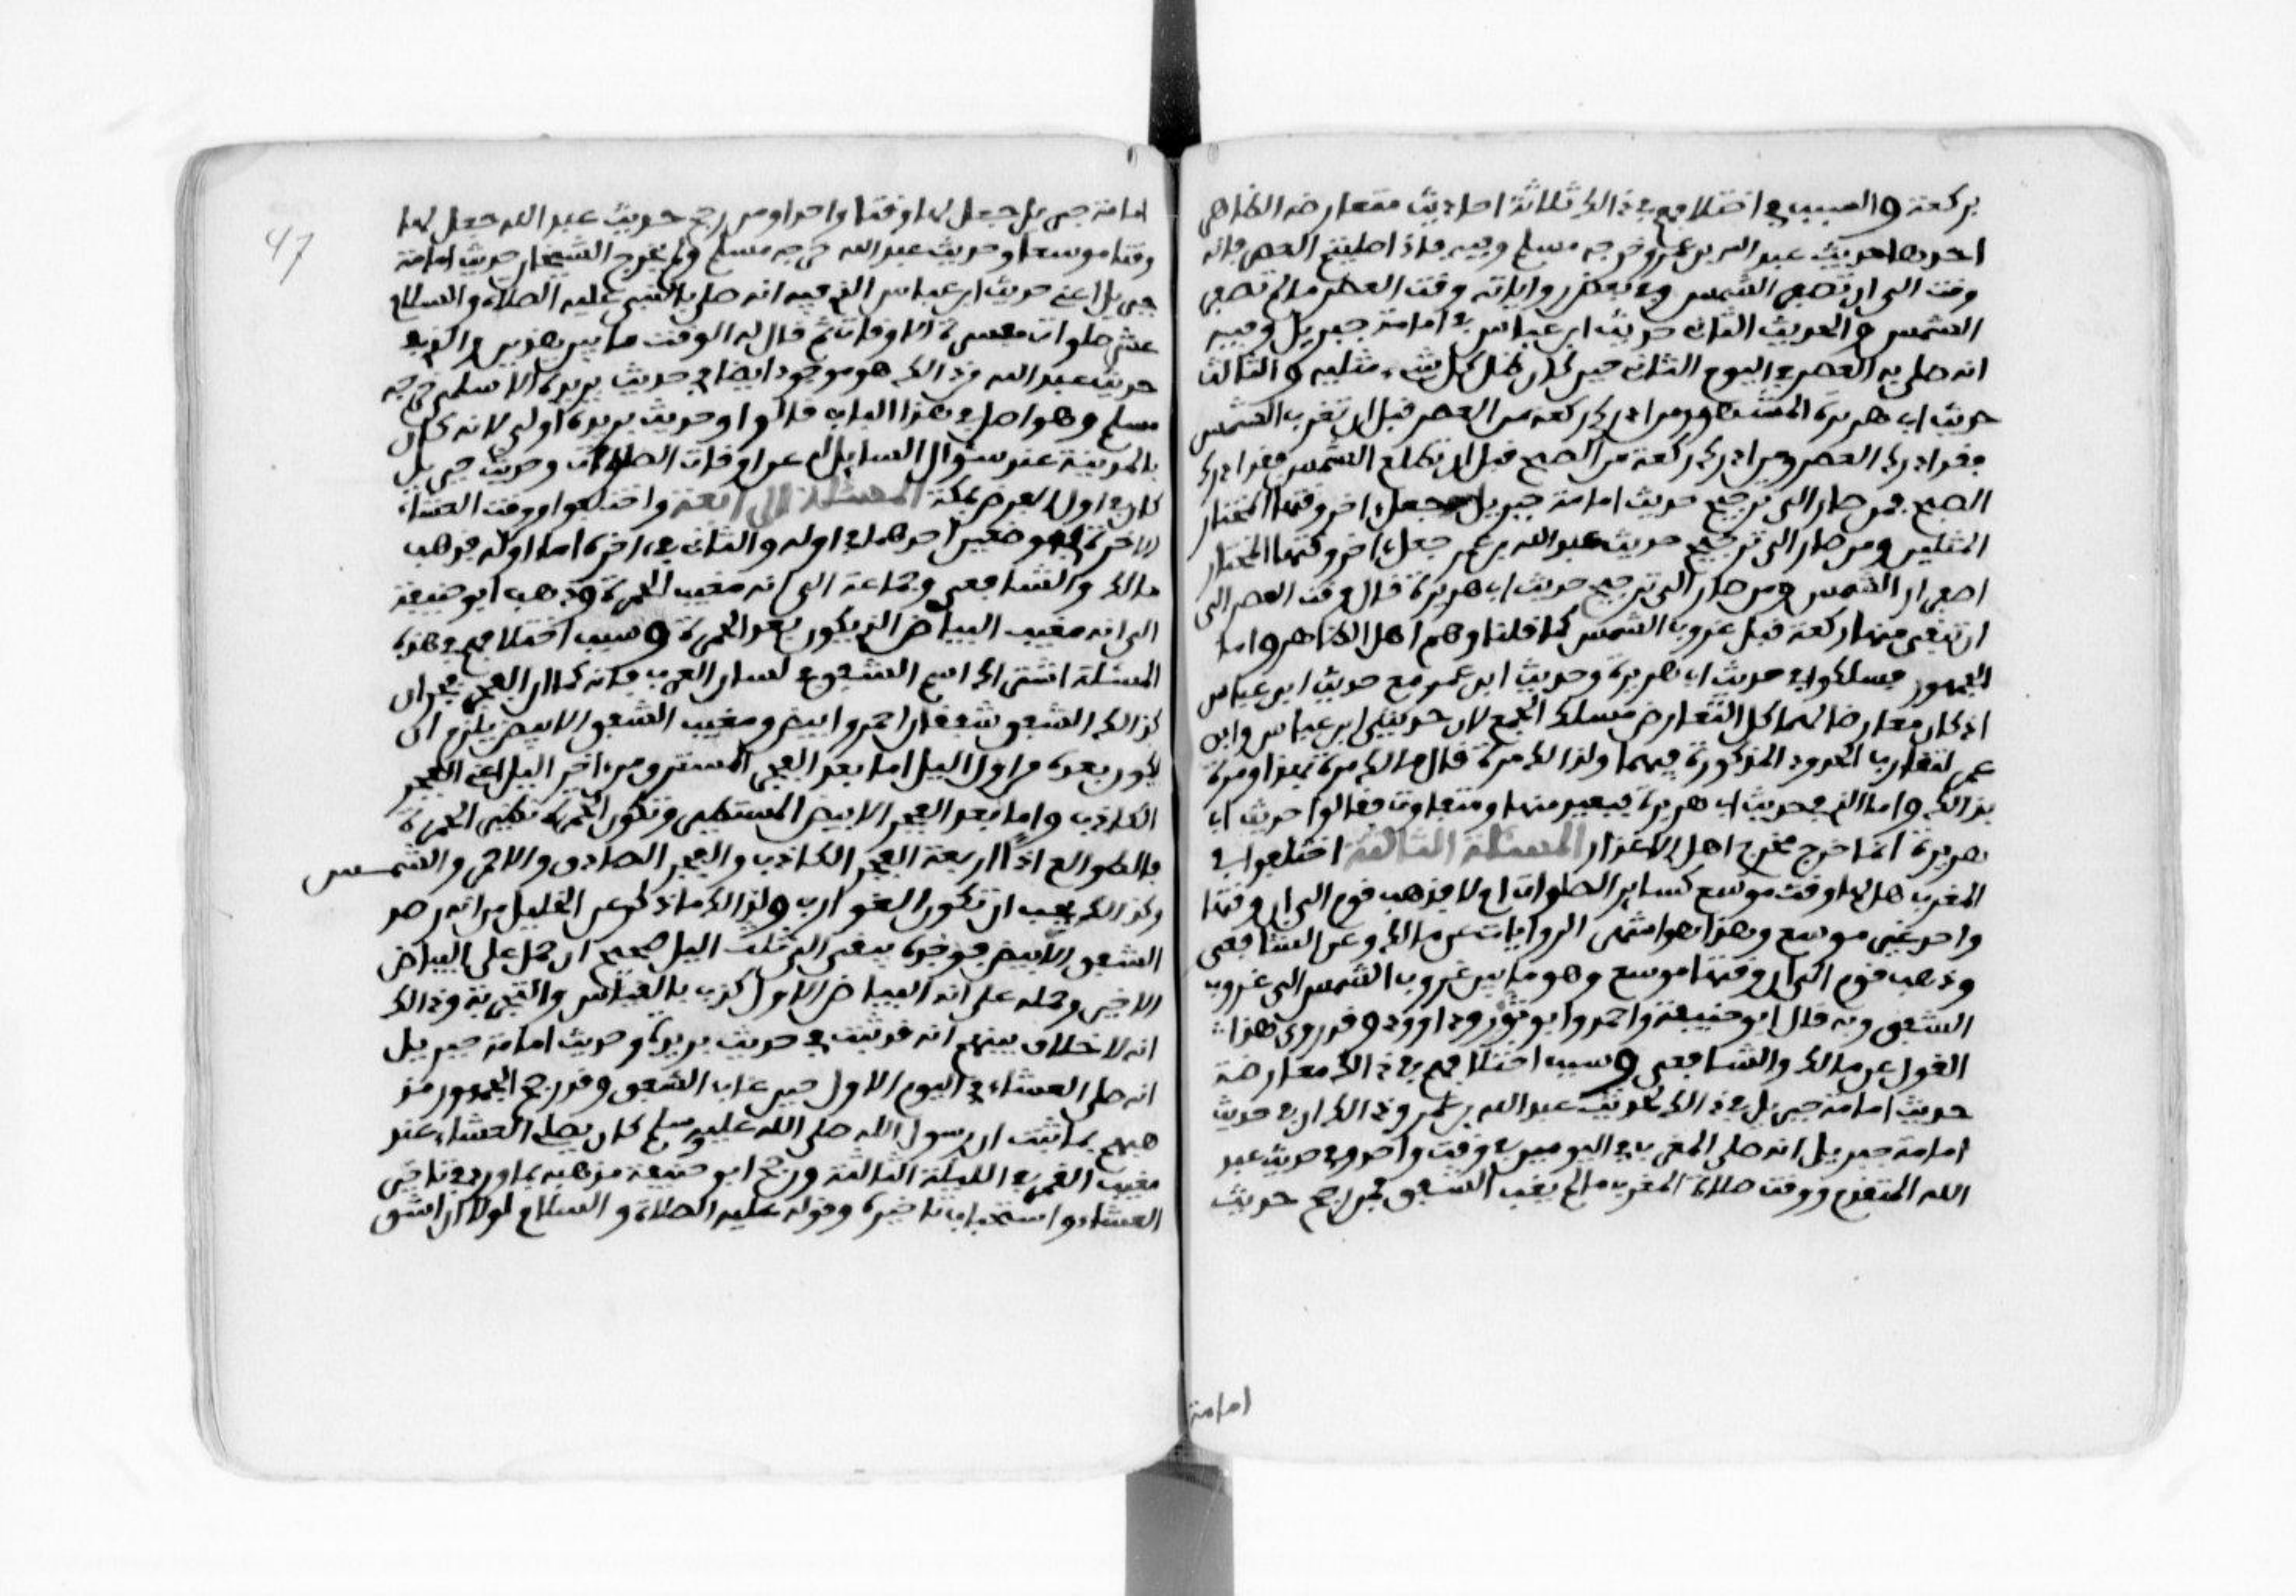 بركعة والسبب في اختلافهم في ذلك ثلاثة احاديث متعارضة الظاهر
احدها حديث عبد الله بن عمر وخرجه مسلم وفيه فاذا صليتم العصر فانه
وقت الى ان تصفر الشمس وفي بعض رواياته وقت العصر ما لم تصفر
الشمس والحديث الثاني حديث ابن عباس في امامة جبريل وفيه
انه صلى به العصر في اليوم الثاني حين كان ظل كل شيء مثليه والثالث
حديث ابي هريرة المشهور من ادرك ركعة من العصر قبل ان تغرب الشمس
فقد ادرك العصر ومن ادرك ركعة من الصبح قبل ان تطلع الشمس فقد ادرك
الصبح فمن صار الى ترجيح حديث امامة جبريل جعل اخر وقتها المختار
المثلين ومن صار الى ترجيح حديث عبد الله بن عمر جعل اخر وقتها المختار
اصفرار الشمس ومن صار الى ترجيح حديث ابي هريرة قال وقت العصر الى
ان تبقى منها ركعة قبل غروب الشمس كما قلنا وهم اهل الظاهر واما
الجمهور فسلكوا في حديث ابي هريرة وحديث ابن عمر مع حديث ابن عباس
اذ كان معارضا لهما كل التعارض مسلك الجمع لان حديثي ابن عباس وابن
عمر لتقارب الحدود المذكورة فيهما ولذلك مرة قال مالك مرة بهذا ومرة
بذلك واما الذي في حديث ابي هريرة فبعيد منهما ومتفاوت فقالوا حديث ابي
هريرة انما خرج مخرج اهل الاعذار المسئلة الثالثة اختلفوا في
المغرب هل لها وقت موسع كساير الصلوات ام لا فذهب قوم الى ان وقتها
واحد غير موسع وهذا هو اشهر الروايات عن مالك وعن الشافعي
وذهب قوم الى ان وقتها موسع وهو ما بين غروب الشمس الى غروب
الشفق وبه قال ابو حنيفة واحمد وابو ثور وداوود وقد روي هذا
القول عن مالك والشافعي وسبب اختلافهم في ذلك معارضة
حديث امامة جبريل في ذلك لحديث عبد الله بن عمر وذلك ان في حديث
امامة جبريل انه صلى المغرب في اليومين في وقت واحد وفي حديث عبد
الله المتقدم ووقت صلاة المغرب ما لم يغب الشفق فمن رجح حديث
امامة
47
امامة جبريل جعل لها وقتا واحدا ومن رجح حديث عبد الله جعل لها
وقتا موسعا وحديث عبد الله خرجه مسلم ولم يخرج الشيخان حديث امامة
جبريل اعني حديث ابن عباس الذي فيه انه صلى بالنبي عليه الصلاة والسلام
عشر صلوات مفسرة الاوقات ثم قال له الوقت ما بين هذين والذي في
حديث عبد الله من ذلك هو موجود ايضا في حديث بريدة الاسلمي خرجه
مسلم وهو اصل في هذا الباب قالوا وحديث بريدة اولى لانه كان
بالمدينة عند سؤال السايل له عن اوقات الصلوات وحديث جبريل
كان في اول الفرض بمكة المسئلة الرابعة واختلفوا ووقت العشاء
الاخرة في موضعين احدهما في اوله والثاني في اخره اما اوله فذهب
مالك والشافعي وجماعة الى انه مغيب الحمرة وذهب ابو حنيفة
الى انه مغيب البياض الذي يكون بعد الحمرة وسبب اختلافهم في هذه
المسئلة اشتراك اسم الشفق في لسان العرب فانه كما ان الفجر فجران
كذلك الشفق شفقان احمر وابيض ومغيب الشفق الابيض يلزم ان
يكون بعده من اول اليل اما بعد الفجر المستدق من اخر اليل اعني الفجر
الكاذب واما بعد الفجر الابيض المستطير وتكون الحمرة نظير الحمرة
فالطوالع اذا اربعة الفجر الكاذب والفجر الصادق والاحمر والشمس
وكذلك يجب ان تكون الغوارب ولذلك ما ذكر عن الخليل من انه رصد
الشفق الابيض فوجده يبقى الى ثلث اليل صحيح ان حمل على البياض
الاخير وحمله على انه البياض الاول كذب بالقياس والتجربة وذلك
انه لا خلاف بينهم انه قد ثبت في حديث بريدة وحديث امامة جبريل
انه صلى العشاء في اليوم الاول حين غاب الشفق وقد رجح الجمهور مذ
هبهم بما ثبت ان رسول الله صلى الله عليه وسلم كان يصلي العشاء عند
مغيب القمر في الليلة الثالثة ورجح ابو حنيفة مذهبه بما ورد في تاخير
العشاء واستحباب تاخيره وقوله عليه الصلاة والسلام لولا ان اشق